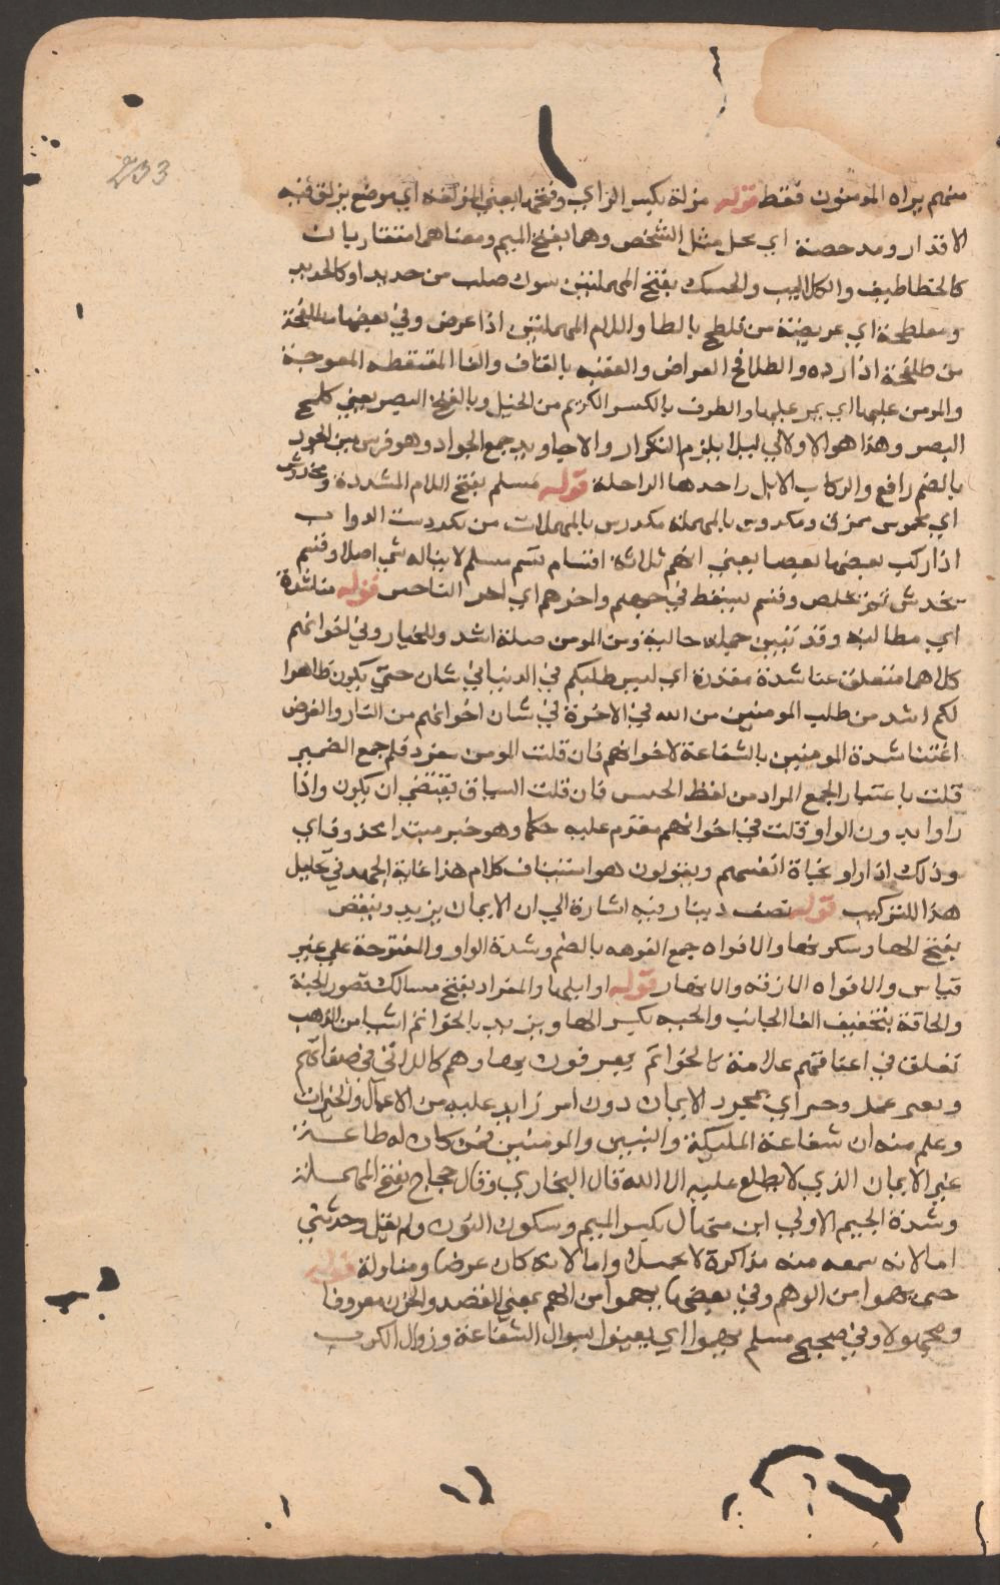 233
منهم يراه المومنون فقط قوله مزلة بكسر الزاي وفتحها بمعني المزلقة اي موضع يزلق فيه
الاقدار ومدحضة اي محل مثل الشخص وهما بفتح الميم ومعناهما متقاربان
كالخطاطيف والكلاليب والحسك بفتح المهملتين شوك صلب من حديد او كالحديد
ومفلطحة اي عريضة من فلطح بالطا واللام المهملتين اذا عرض وفي بعضها مطلفحة
من طلفحة اذا رده والطلافح العراض والعقفه بالقاف والفا المنعطفه المعوجة
والمومن عليها اي يمر عليها والطرف بالكسر الكريم من الخيل وبالفتح البصر يعني كلمح
البصر وهذا هو الاولالي ليلا يلزم التكرار والاجاويد جمع الجواد وهو فرس بين الجود
بالضم رافع والركاب الابل واحدها الراحلة قوله مسلم بفتح اللام المشددة ومخدوش
اي مخموش ممزق ومكدوس بالمهملة مكدرس بالمهملات من تكردست الدواب
اذا ركب بعضها بعضا يعني انهم ثلاثة اقسام قسم مسلم لا يناله شي اصلا وقسم
يخدش ثم يخلص وقسم يسقط في جهنم واخرهم اي اخر الناجين قوله مناشدة
اي مطالبه وقد تبين جملة حالية ومن المومن صلة اشد وللجبار وفي اخوانهم
كلاهما متعلق بمناشدة مقدرة اي ليس طلبكم في الدنيا في شان حق يكون ظاهرا
لكم اشد من طلب المومنين من الله في الاخرة في شان اخوانهم من النار والغرض
اعتنا شدة المومنين بالشفاعة لاخوانهم فان قلت المومن مفرد فلم جمع الضمير
قلت باعتبار الجمع المراد من لفظ الجنس فان قلت السياق يقتضي ان يكون واذا
راوا بدون الواو قلت في اخوانهم مقدم عليه حكما وهو خبر مبتدا محذوف اي
وذلك اذا راو نجاة انفسهم ويقولون هو استيناف كلام هذا غاية الجهد في تحليل
هذا التركيب قوله نصف دينار فيه اشارة الي ان الايمان يزيد وينقص
بفتح الها وسكونها والافواه جمع الفوهه بالضم وشدة الواو والمفتوحة علي غير
قياس والافواه الازقة والانهار قوله اوايلها والمراد بفتح مسالك قصور الجنة
والحافة بتخفيف الفا الجانب والحبه بكسر الها ويريد بالخواتم اشيا من الذهب
تعلق في اعناقهم علامة كالخواتم يعرفون بها وهم كاللالي في صفايهم
وبغير عمل وخير اي بمجرد الايمان دون امر زايد عليه من الاعمال والخيرات
وعلم منه ان شفاعة المليكة والنبيين والمومنين فيمن كان له طاعة
غير الايمان الذي لا يطلع عليه الا الله قال البخاري وقال حجاج بفتح المهملة
وشدة الجيم الاولي ابن منهال بكسر الميم وسكون النون ولم يقل وحدثني
اما لانه سمعه منه مذاكرة لا تحميلا واما لانه كان عرضا ومناولة قوله
حتي يهموا من الوهم وفي بعضها يهموا من الهم بمعني القصد والحزن معروفا
ومجهولا وفي صحيح مسلم يهموا اي يعتنوا بسوال الشفاعة وزوال الكرب